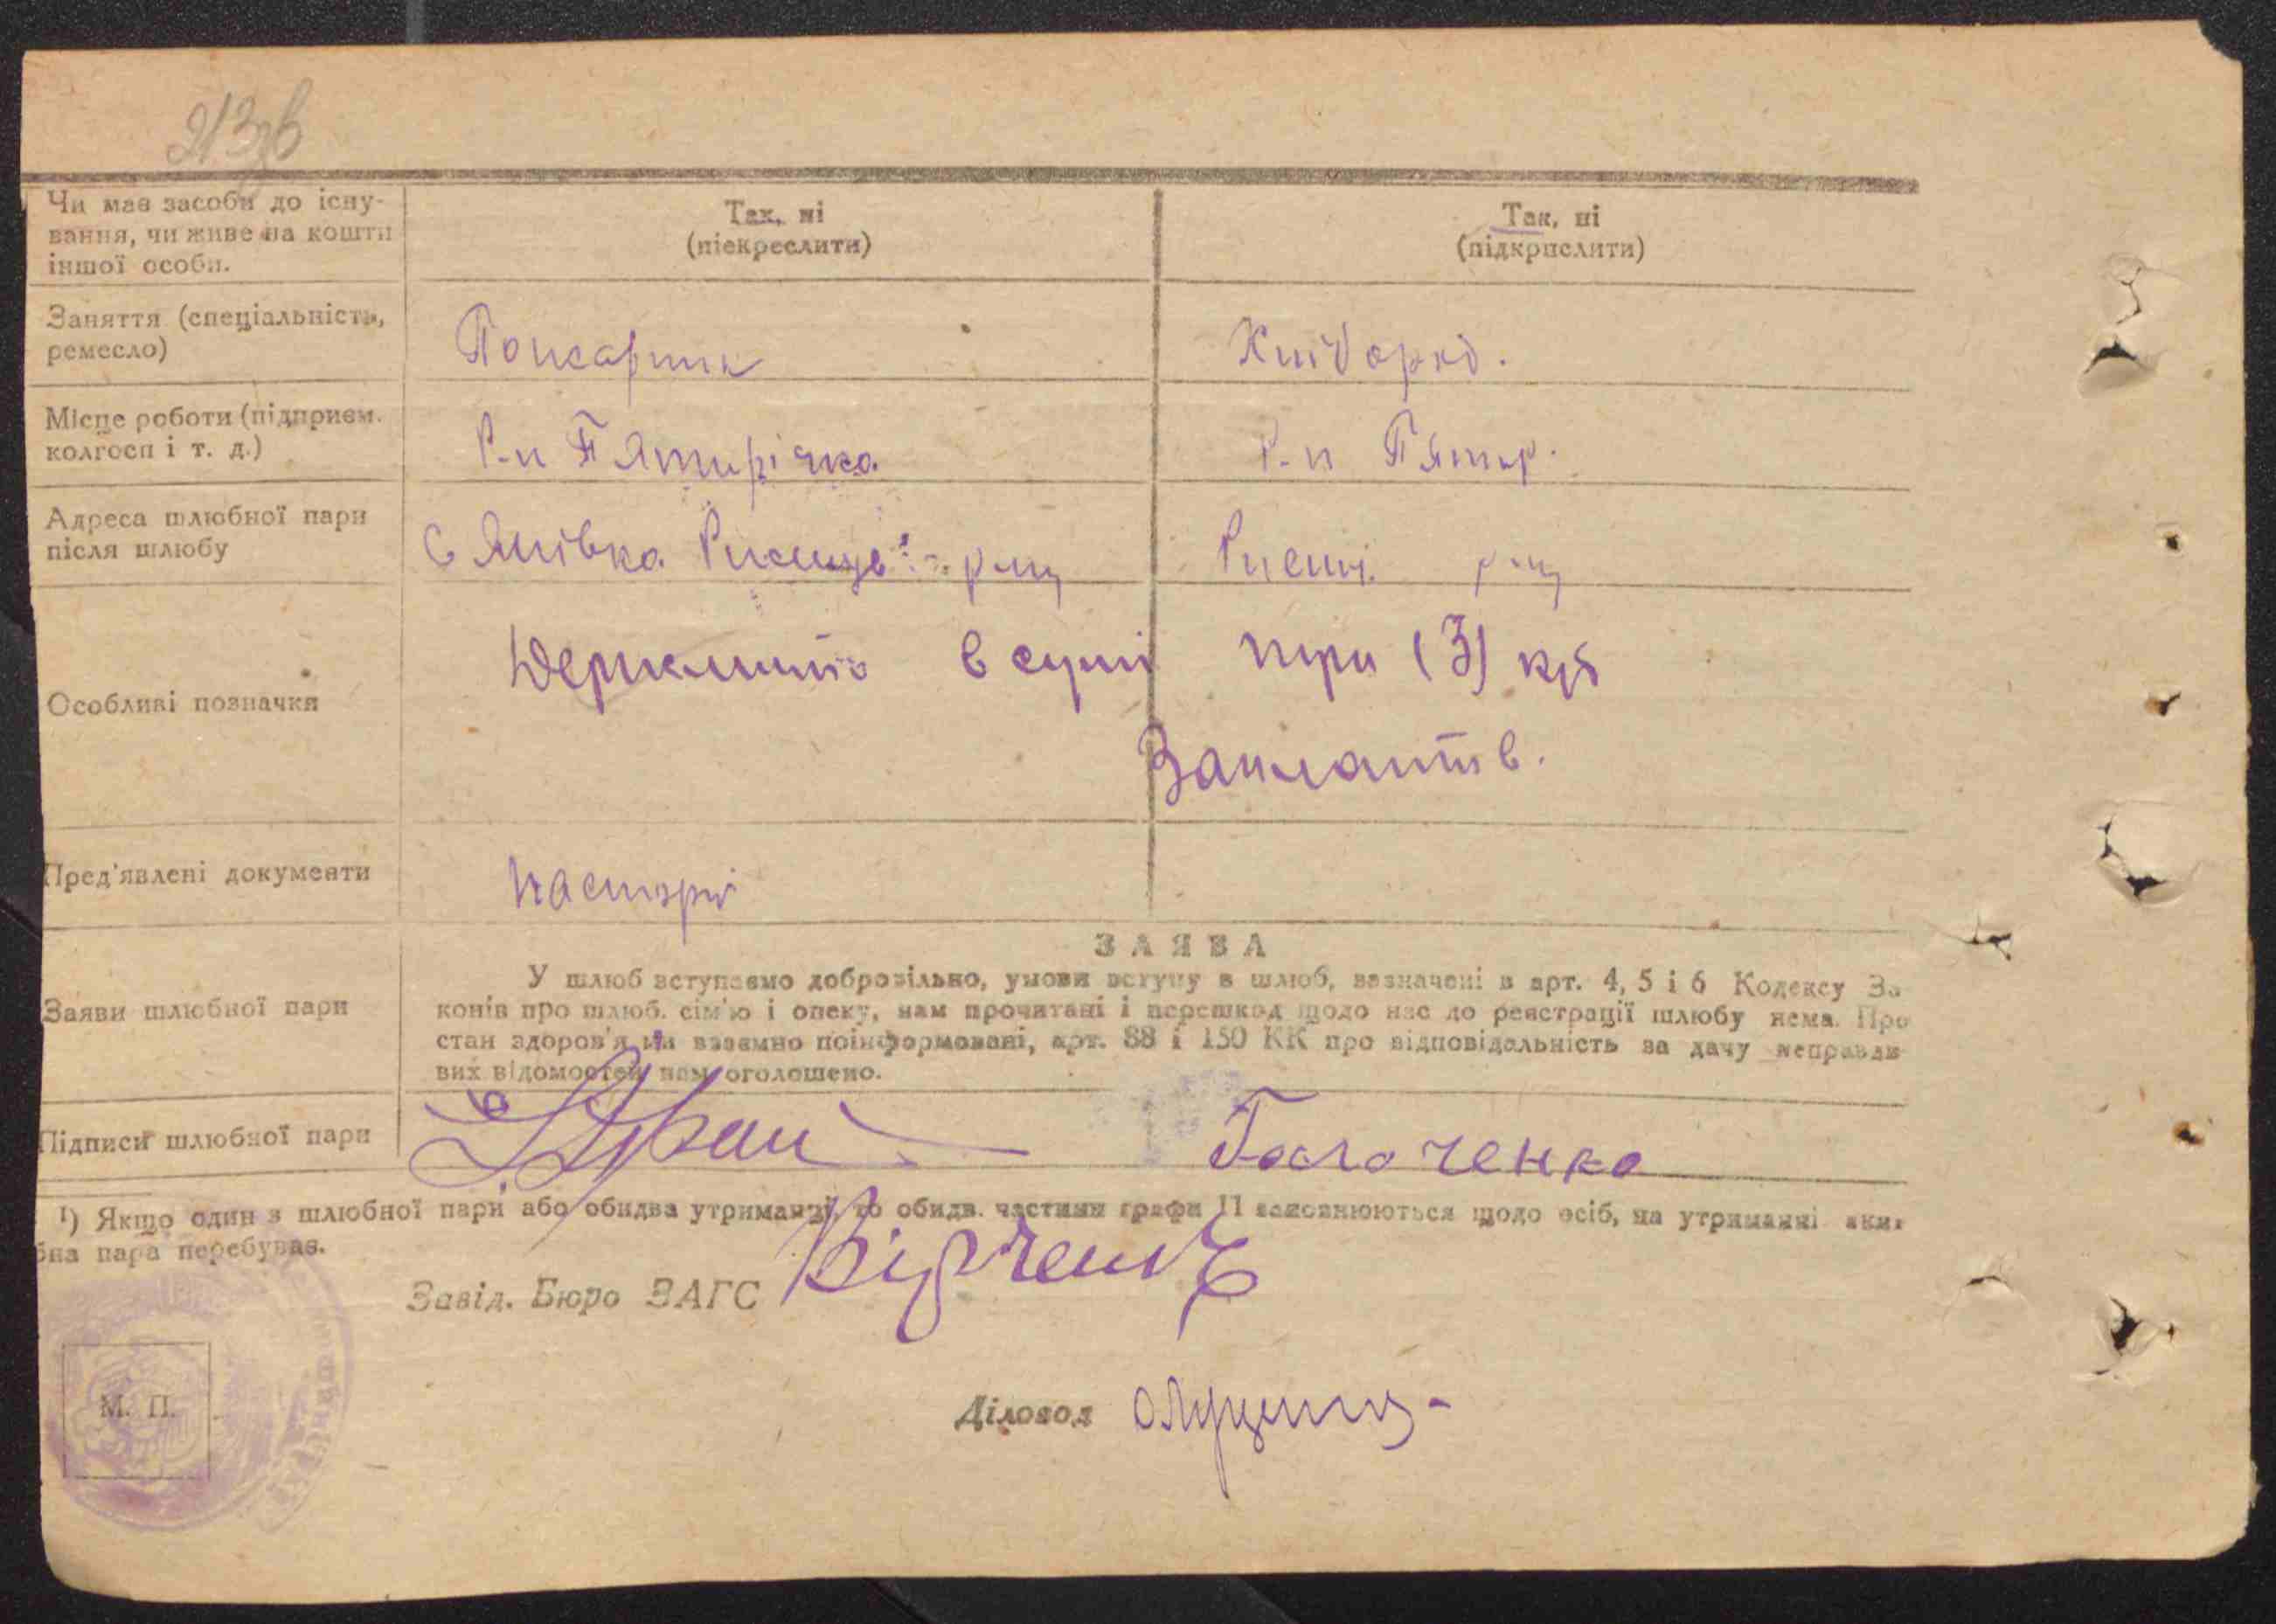 213зв
Чи має засоби до існу-
вання, чи живе на кошти
іншої особи.
Так, ні
(піекреслити)
Так, ні
(підкрислити)
Заняття (спеціальність,
ремесло)
Пожарник
Місце роботи (підприєм.
колгосп і т. д.)
Р-п Пятирічка
Р-п Пятир.
Адреса шлюбної пари
після шлюбу
с Янівка
Особливі позначки
Держмито в сумі три (3) крб
Заплатів.
Пред'явлені документи
паспорт
ЗАЯВА
Заяви шлюбної пари
У шлюб вступаємо добровільно, умови вступу в шлюб, вазначені в арт. 4, 5 і 6 Кодексу За
конів про шлюб. сім'ю і опеку, нам прочитані і перешкод щодо нас до реєстрації шлюбу нема. Про
стан здоров'я ми взаємно поінформовані, арт. 88 і 150 КК про відповідальність за дачу неправди
вих відомостей нам оголошено.
Підписи шлюбної пари
¹) Якщо один з шлюбної пари або обидва утриманці, то обидв. частини графи 11 заповнюються щодо осіб, на утриманні яких
бна пара перебуває.
Завід. Бюро ЗАГС
М. П.
Діловод